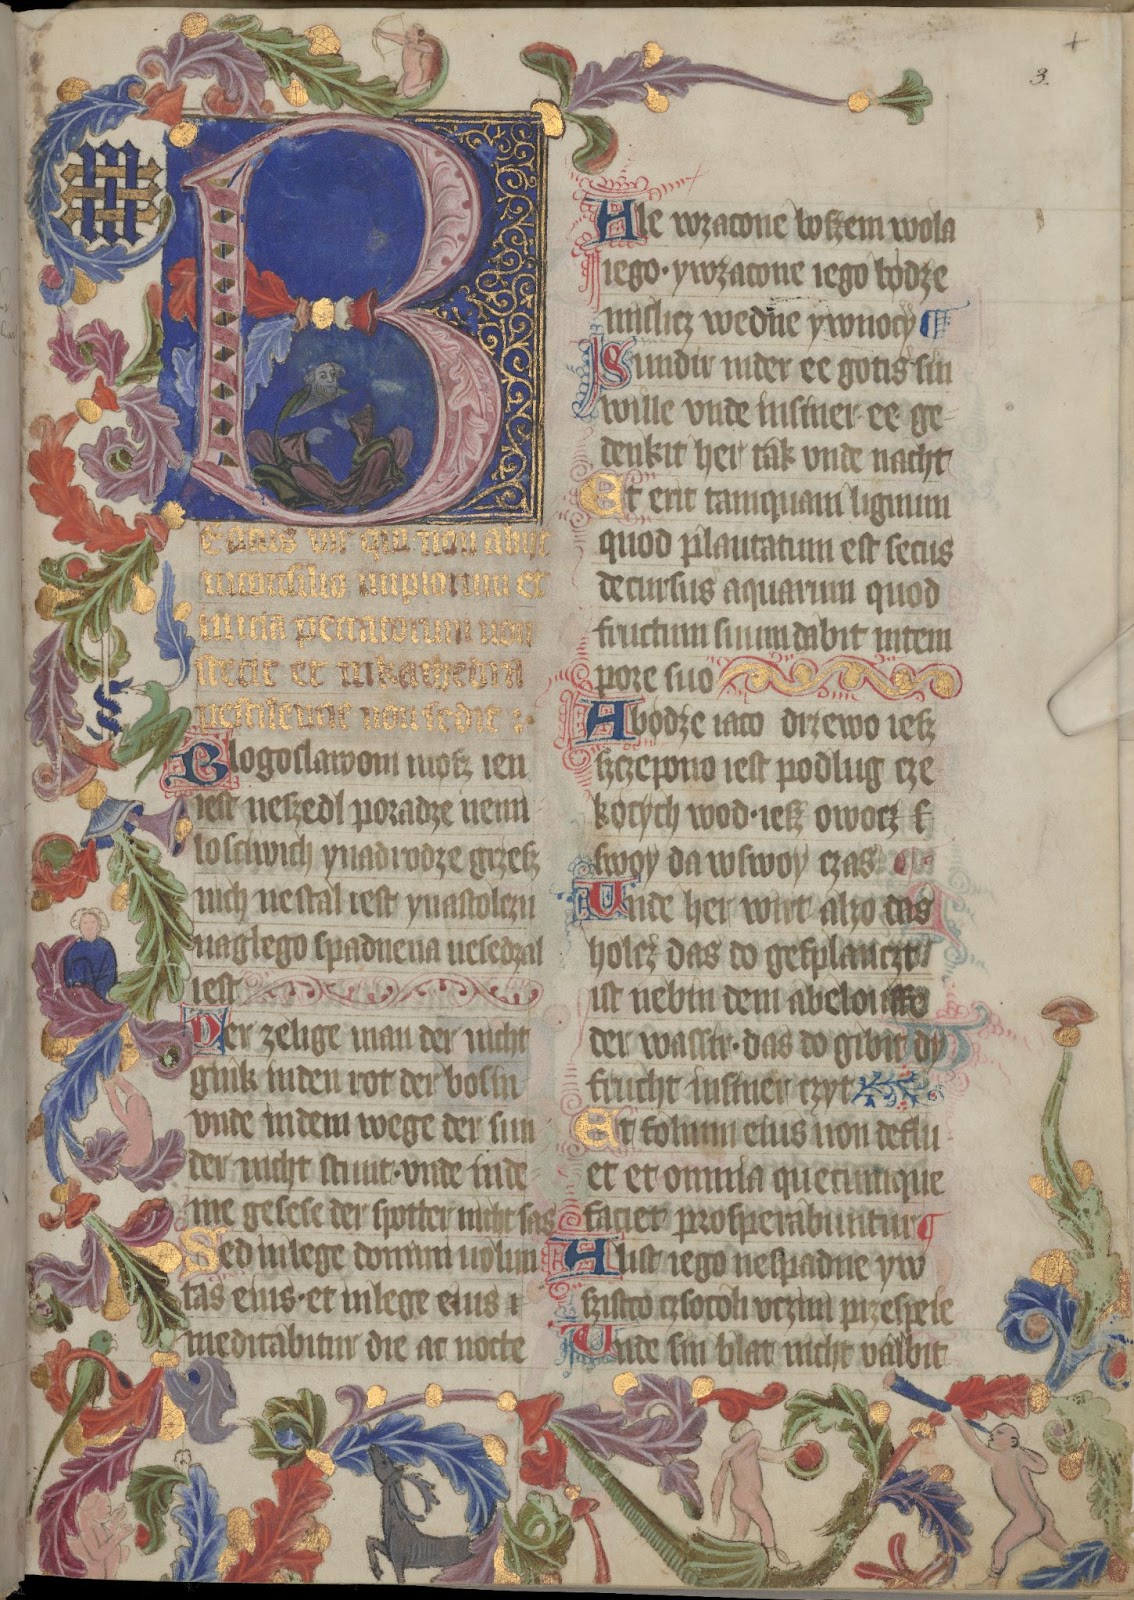 3.
B
Eatus vir qui non abijt
in consilio impiorum et
in uia peccatorum non
stetit et in kathedra
pestilencie non sedit :·
Blogoslawoni møsz ien
iest neszedl po radze nemi
losciwich y na drodze grzesz
nich ne stal iest y na stolczu
naglego spadnena ne sedzal
iest
Der zelige man der nicht
gink in den rot der bosin
vnde in dem wege der sun
der nicht stunt · vnde in de
me gesese der spotter nicht sas
Sed in lege domini uolun
tas eius · et in lege eius
meditabitur die ac nocte
Ale w zacone bszem wola
iego · y w zacone iego bødze
mislicz we dne y w nocy
Sundir in der ee gotis sin
wille vnde in siner ee ge
denkit her tak vnde nacht
Et erit tamquam lignum
quod plantatum est secus
decursus aquarum quod
fructum suum dabit in tem
pore suo
A bødze iaco drzewo iesz
szczepono iest podlug cze
køcych wod · iesz owocz
swoy da w swoy czas
Unde her wirt alzo das
holcz das do gesplanczt
ist nebin dem
der wassir · das do gibit dy
frucht in siner czyt
Et folium eius non deflu
et et omnia quecumque
faciet prosperabuntur
A list iego ne spadne y w
szistco czsocoli uczini przespeie
Unde sin blat nicht valbit